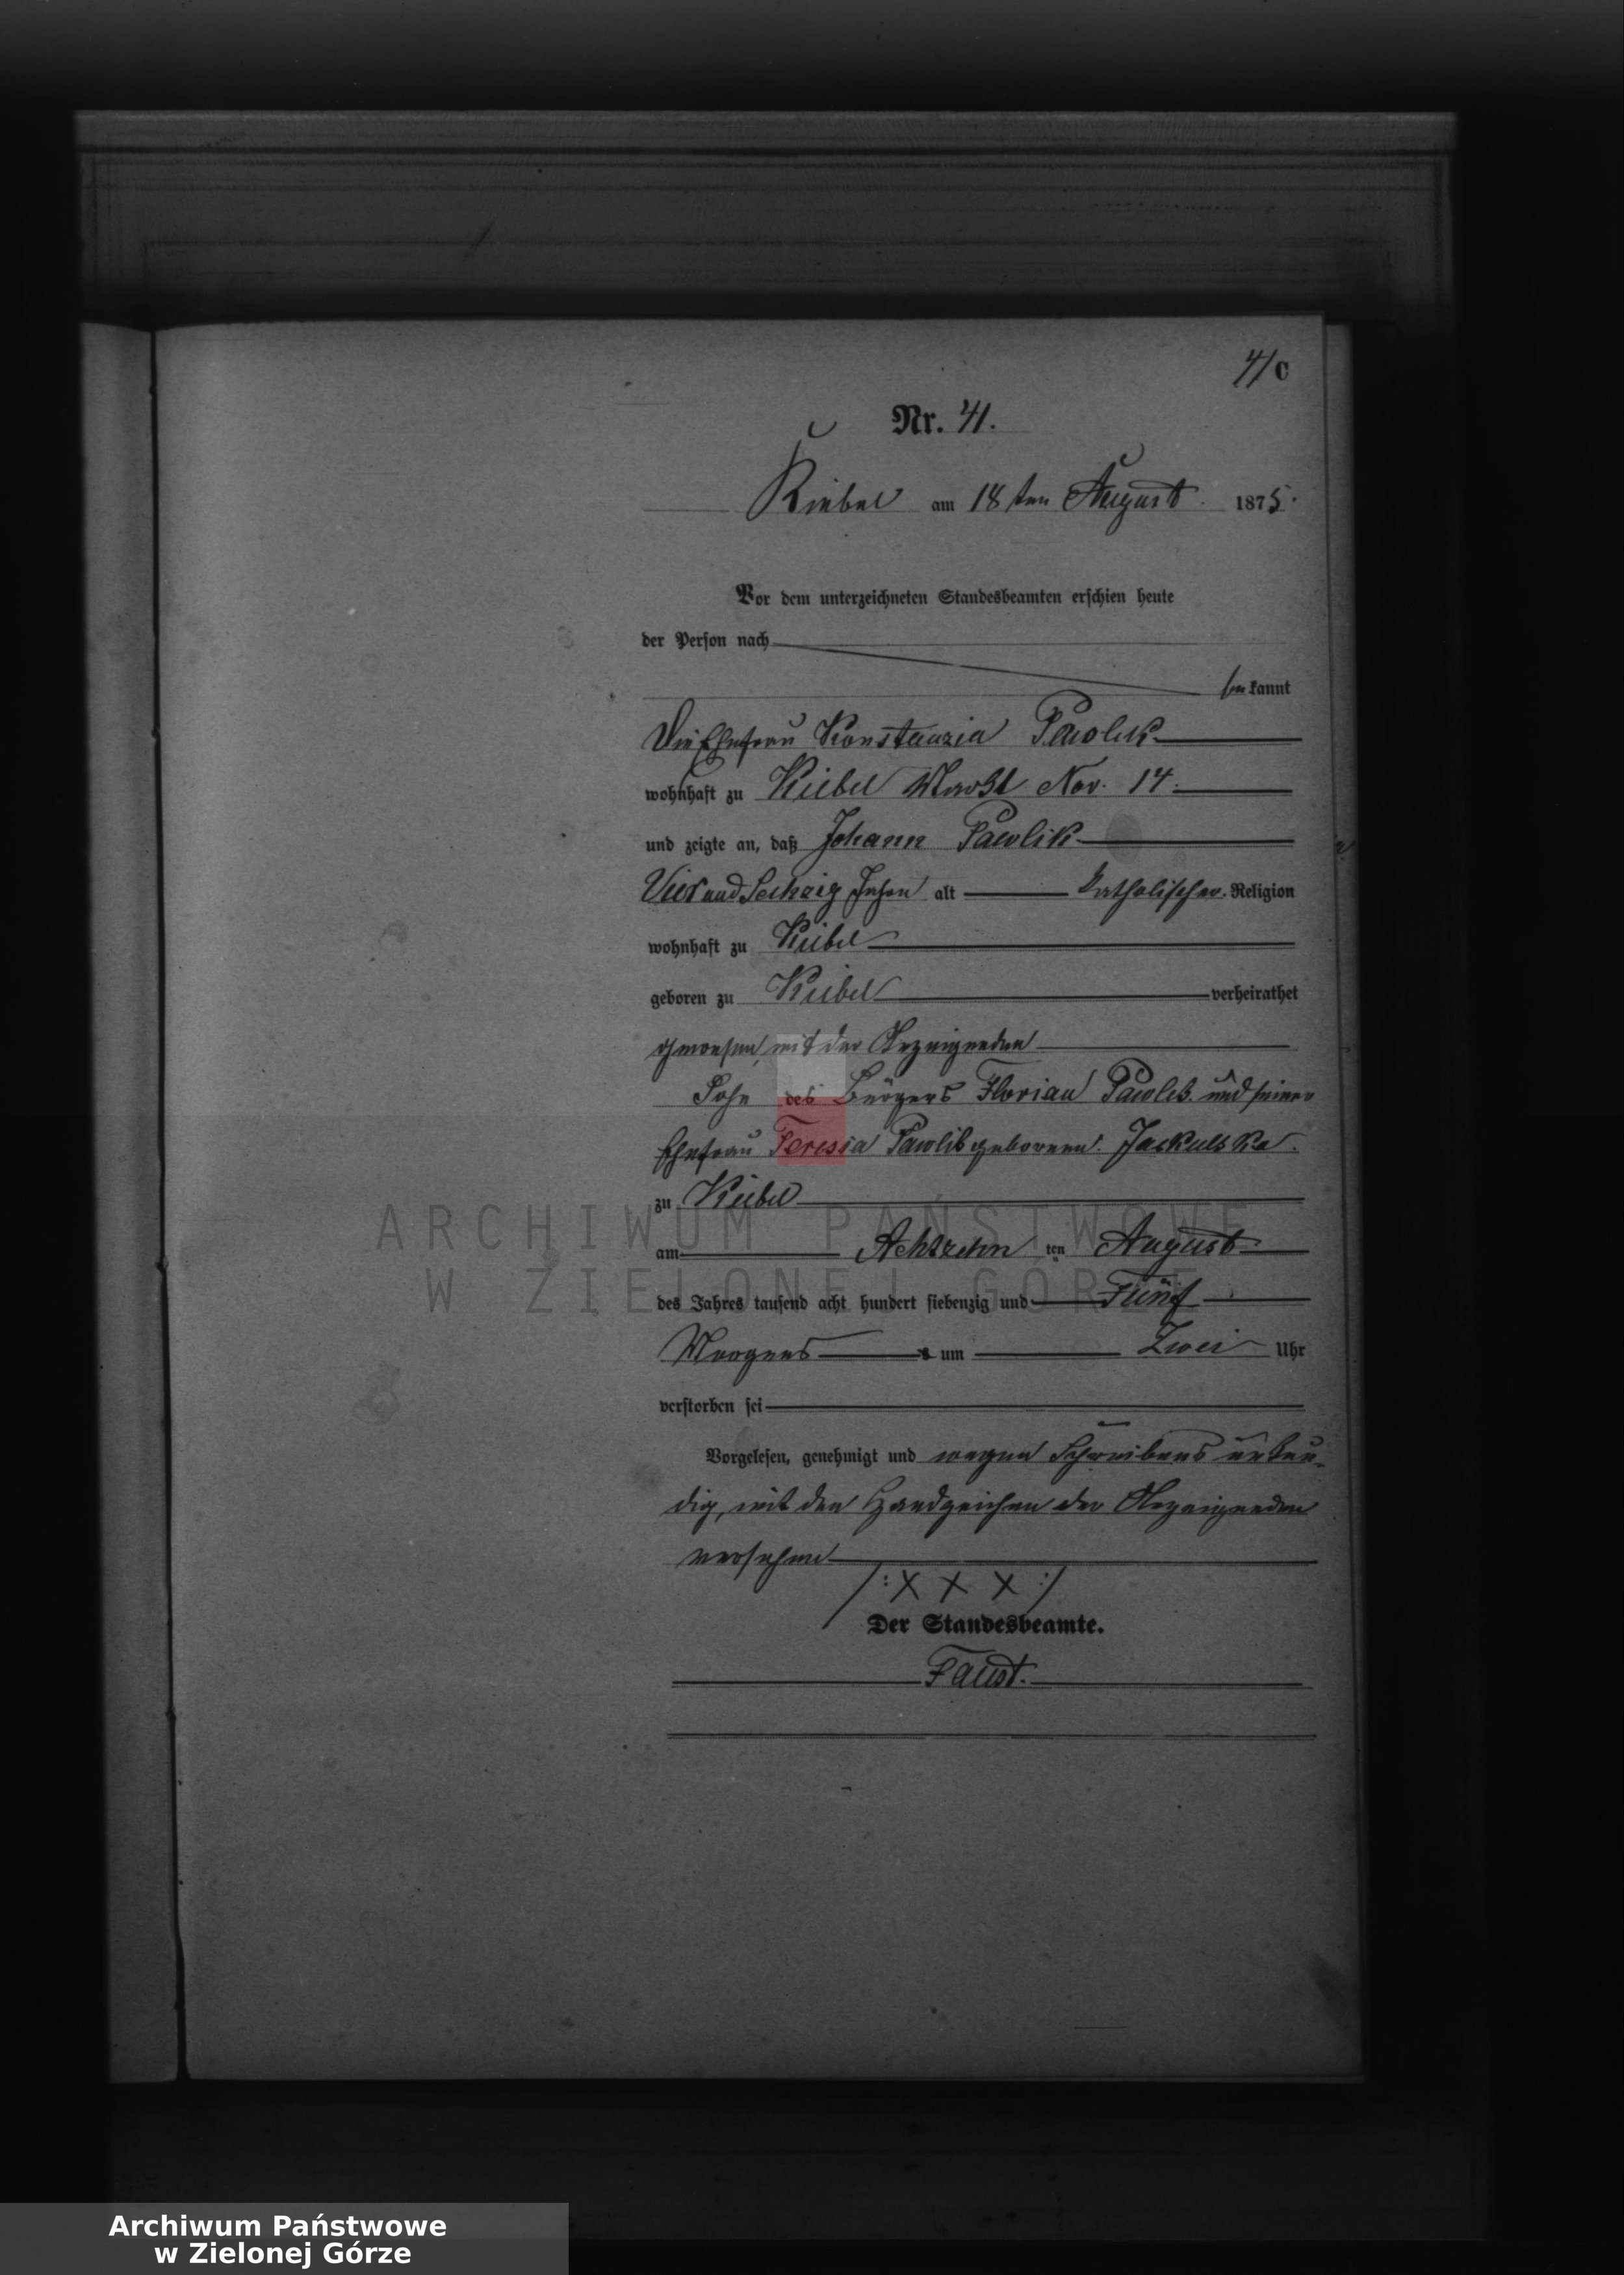 41/C
Nr. 41.
Kiebel am 18 ten August 1875.
Vor dem unterzeichneten Standesbeamten erschien heute
der Person nach
bekannt
Die Ehefrau Konstanzia Pawlik
wohnhaft zu Kiebel Markt Nro. 14.
und zeigte an, daß Johann Pawlik
Vier und Sechzig Jahre alt katholischer Religion
wohnhaft zu Kiebel
geboren zu Kiebel verheirathet
gewesen, mit der Anzeigenden
Sohn des Bürgers Florian Pawlik und seiner
Ehefrau Teresia Pawlik geborenen
zu Kiebel
am Achtzehn ten August
des Jahres tausend acht hundert siebenzig und Fünf
Morgens um Zwei Uhr
verstorben sei
Vorgelesen, genehmigt und wegen Schreibens unkun-
dig, mit den Handzeichen der Anzeigenden
versehen
/: X X X :/
Der Standesbeamte.
Faust.
ARCHIWUM PAŃSTWOWE
W ZIELONEJ GÓRZE
Archiwum Państwowe
w Zielonej Górze